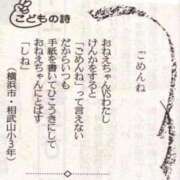 こどもの詩
ごめんね
おねえちゃんVSわたし
けんかをすると
「ごめんね」って言えない
だからいつも
手紙を書いてひこうきにして
おねえちゃんにとばす
「しね」
（横浜市・相武山小3年）